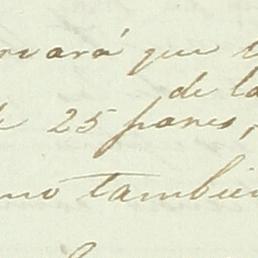 ervará que
de la
25 pares,
mo tambié